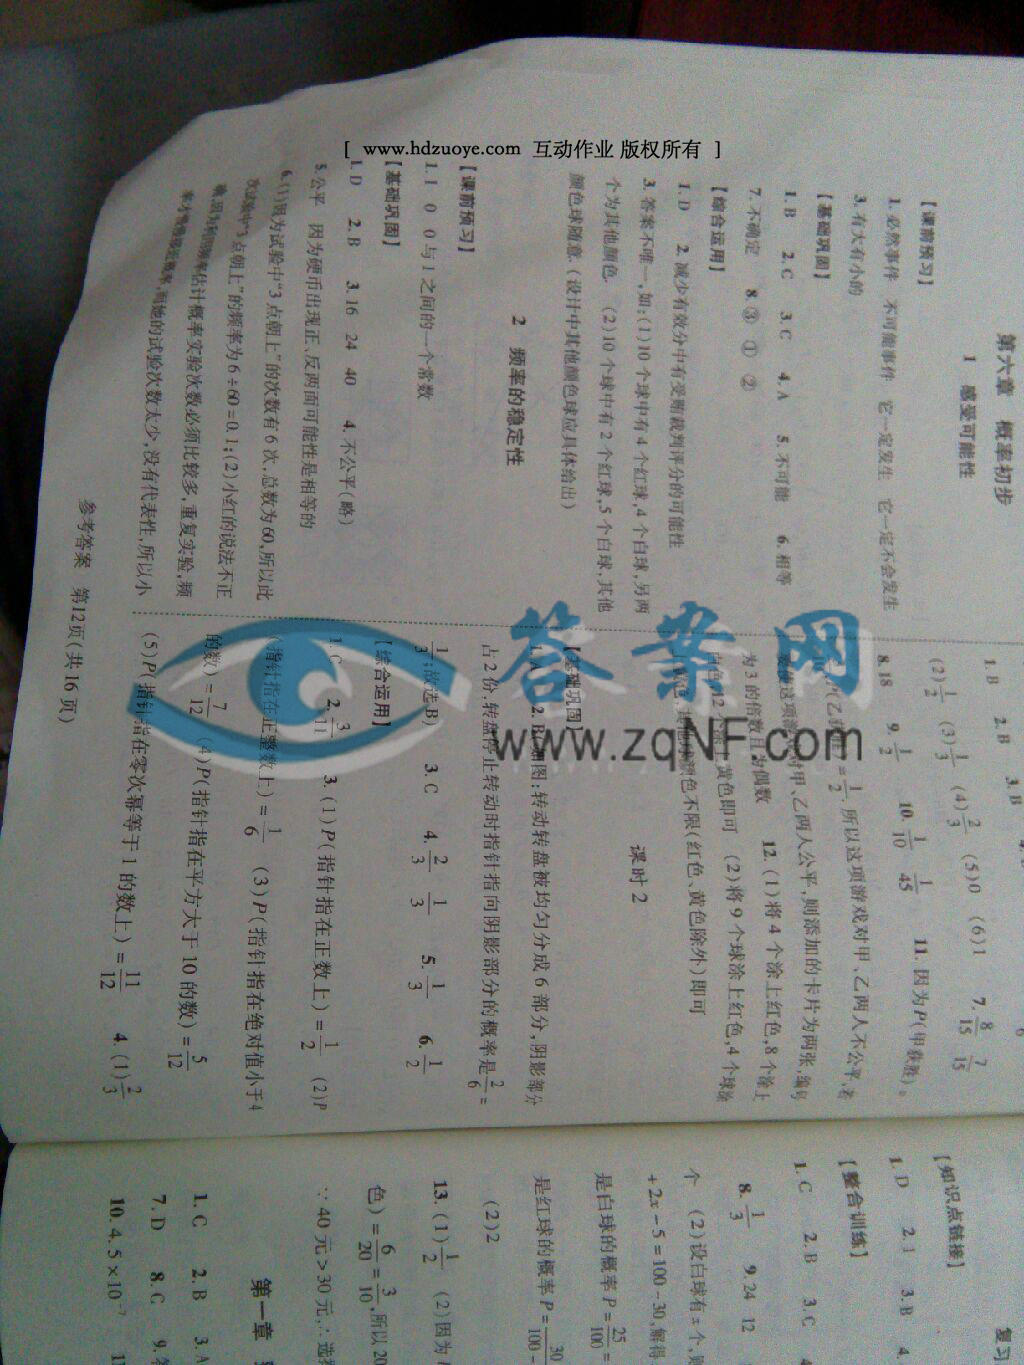 [ www.hdzuoye.com 互动作业 版权所有 ]
第六章 概率初步
1 感受可能性
【课前预习】
1. 必然事件 不可能事件 它一定发生 它一定不会发生
3. 有大有小的
【基础巩固】
1. B 2. C 3. C 4. A 5. 不可能 6. 相等
7. 不确定 8. ③ ① ②
【综合运用】
1. D 2. 减少有效分中有受贿裁判评分的可能性
3. 答案不唯一,如:(1)10 个球中有 4 个红球,4 个白球,另两
个为其他颜色. (2)10 个球中有 2 个红球,5 个白球,其他
颜色球随意. (设计中其他颜色球应具体给出)
2 频率的稳定性
【课前预习】
1. 1 0 0 与 1 之间的一个常数
【基础巩固】
1. D 2. B 3. 16 24 40 4. 不公平(略)
5. 公平 因为硬币出现正、反两面可能性是相等的
6. (1)因为试验中“3 点朝上”的次数有 6 次,总数为 60,所以此
次试验中“3 点朝上”的频率为 6÷60=0.1;(2)小红的说法不正
确,因为利用频率估计概率实验次数必须比较多,重复实验,频
率才慢慢接近概率,而她的试验次数太少,没有代表性,所以小
参考答案 第12页(共 16 页)
3. B
1. B 2. B
(2)1/2 (3)1/3 (4)2/3 (5)0 (6)1 7. 8/15 7/15
8. 18 9. 1/2 10. 1/10 1/45 11. 因为 P(甲获胜)
=1/2. 所以这项游戏对甲、乙两人不公平,若
对甲、乙两人公平,则添加的卡片为两张,编号
为 3 的倍数且为偶数 12. (1)将 4 个涂上红色,8 个涂上
黄色即可 (2)将 9 个球涂上红色,4 个球涂
颜色不限(红色、黄色除外)即可
课时 2
【基础巩固】
2. B 图:转动转盘被均匀分成 6 部分,阴影部分
占 2 份,转盘停止转动时指针指向阴影部分的概率是 2/6 =
1/3,故选 B) 3. C 4. 2/3 1/3 5. 1/3 6. 1/2
【综合运用】
1. C 2. 3/11 3. (1)P(指针指在正数上)=1/2 (2)P
(指针指在正整数上)=1/6 (3)P(指针指在绝对值小于 4
的数)=7/12 (4)P(指针指在平方大于 10 的数)=5/12
(5)P(指针指在零次幂等于 1 的数上)=11/12 4. (1)2/3
答案网
www.zqNF.com
复习
【知识点链接】
1. D 2. 1 3. B 4.
【整合训练】
1. C 2. B 3. C 4
8. 1/3 9. 24 12
个 (2)设白球有 x 个,则
+2x-5=100-30,解得
是白球的概率 P=25/100=
是红球的概率 P=30/100-
(2)2
13. (1)1/2 (2)因为
色)=6/20=3/10,所以 20
∵40 元>30 元,∴选择
第一章
1. C 2. B 3. A
7. D 8. C 9.
10. 4.5×10⁻⁷ 11